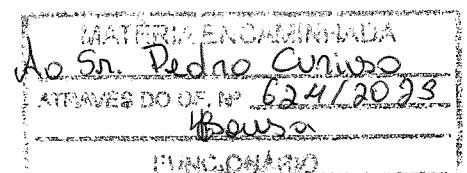 MATÉRIA ENCAMINHADA
Ao Sr. Pedro Curioso
ATRAVÉS DO OF. Nº 624/2023
FUNCIONÁRIO